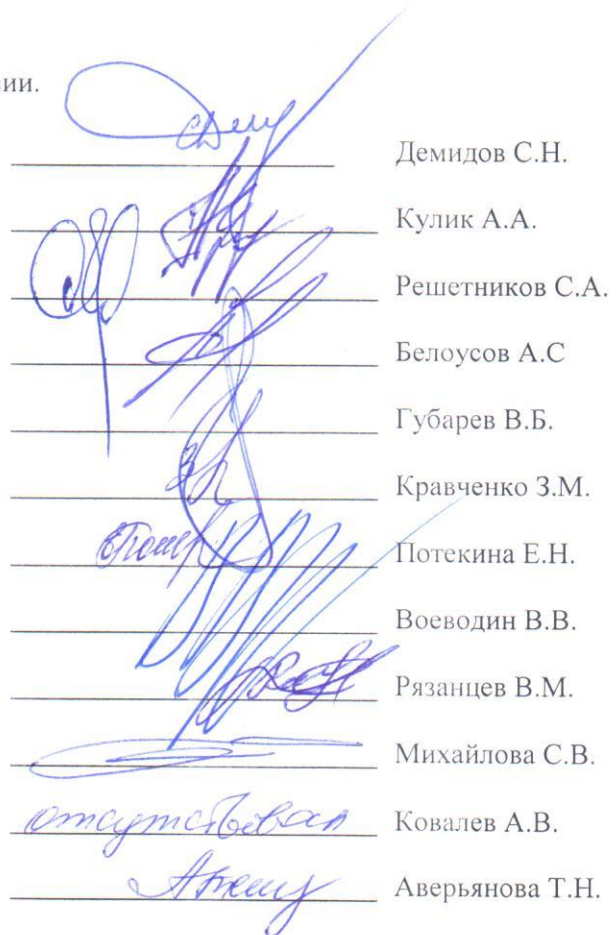 ии.
Демидов С.Н.
Кулик А.А.
Решетников С.А.
Белоусов А.С
Губарев В.Б.
Кравченко З.М.
Потекина Е.Н.
Воеводин В.В.
Рязанцев В.М.
Михайлова С.В.
отсутствовал Ковалев А.В.
Аверьянова Т.Н.